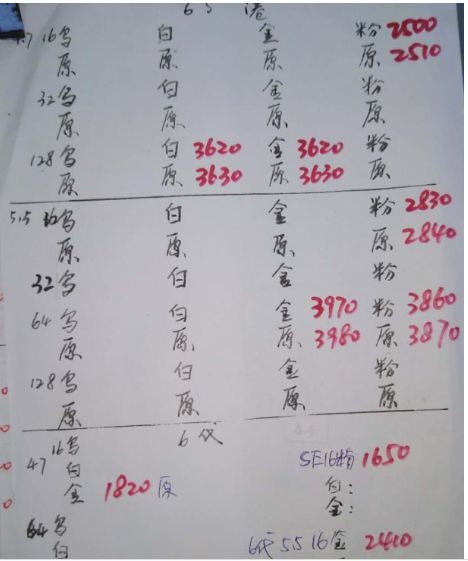 6S 港
4.7 16乌 白 金 粉 2500
原 原 原 原 2510
32乌 白 金 粉
原 原 原 原
128乌 白 3620 金 3620 粉
原 原 3630 原 3630 原
5.5 16乌 白 金 粉 2830
原 原 原 原 2840
32乌 白 金 粉
64乌 白 金 3970 粉 3860
原 原 原 3980 原 3870
128乌 白 金 粉
原 原 原 原
6代
4.7 16乌
白
金 1820 原
64乌
白
SE16粉 1650
白:
金:
6代 5.5 16金 2410